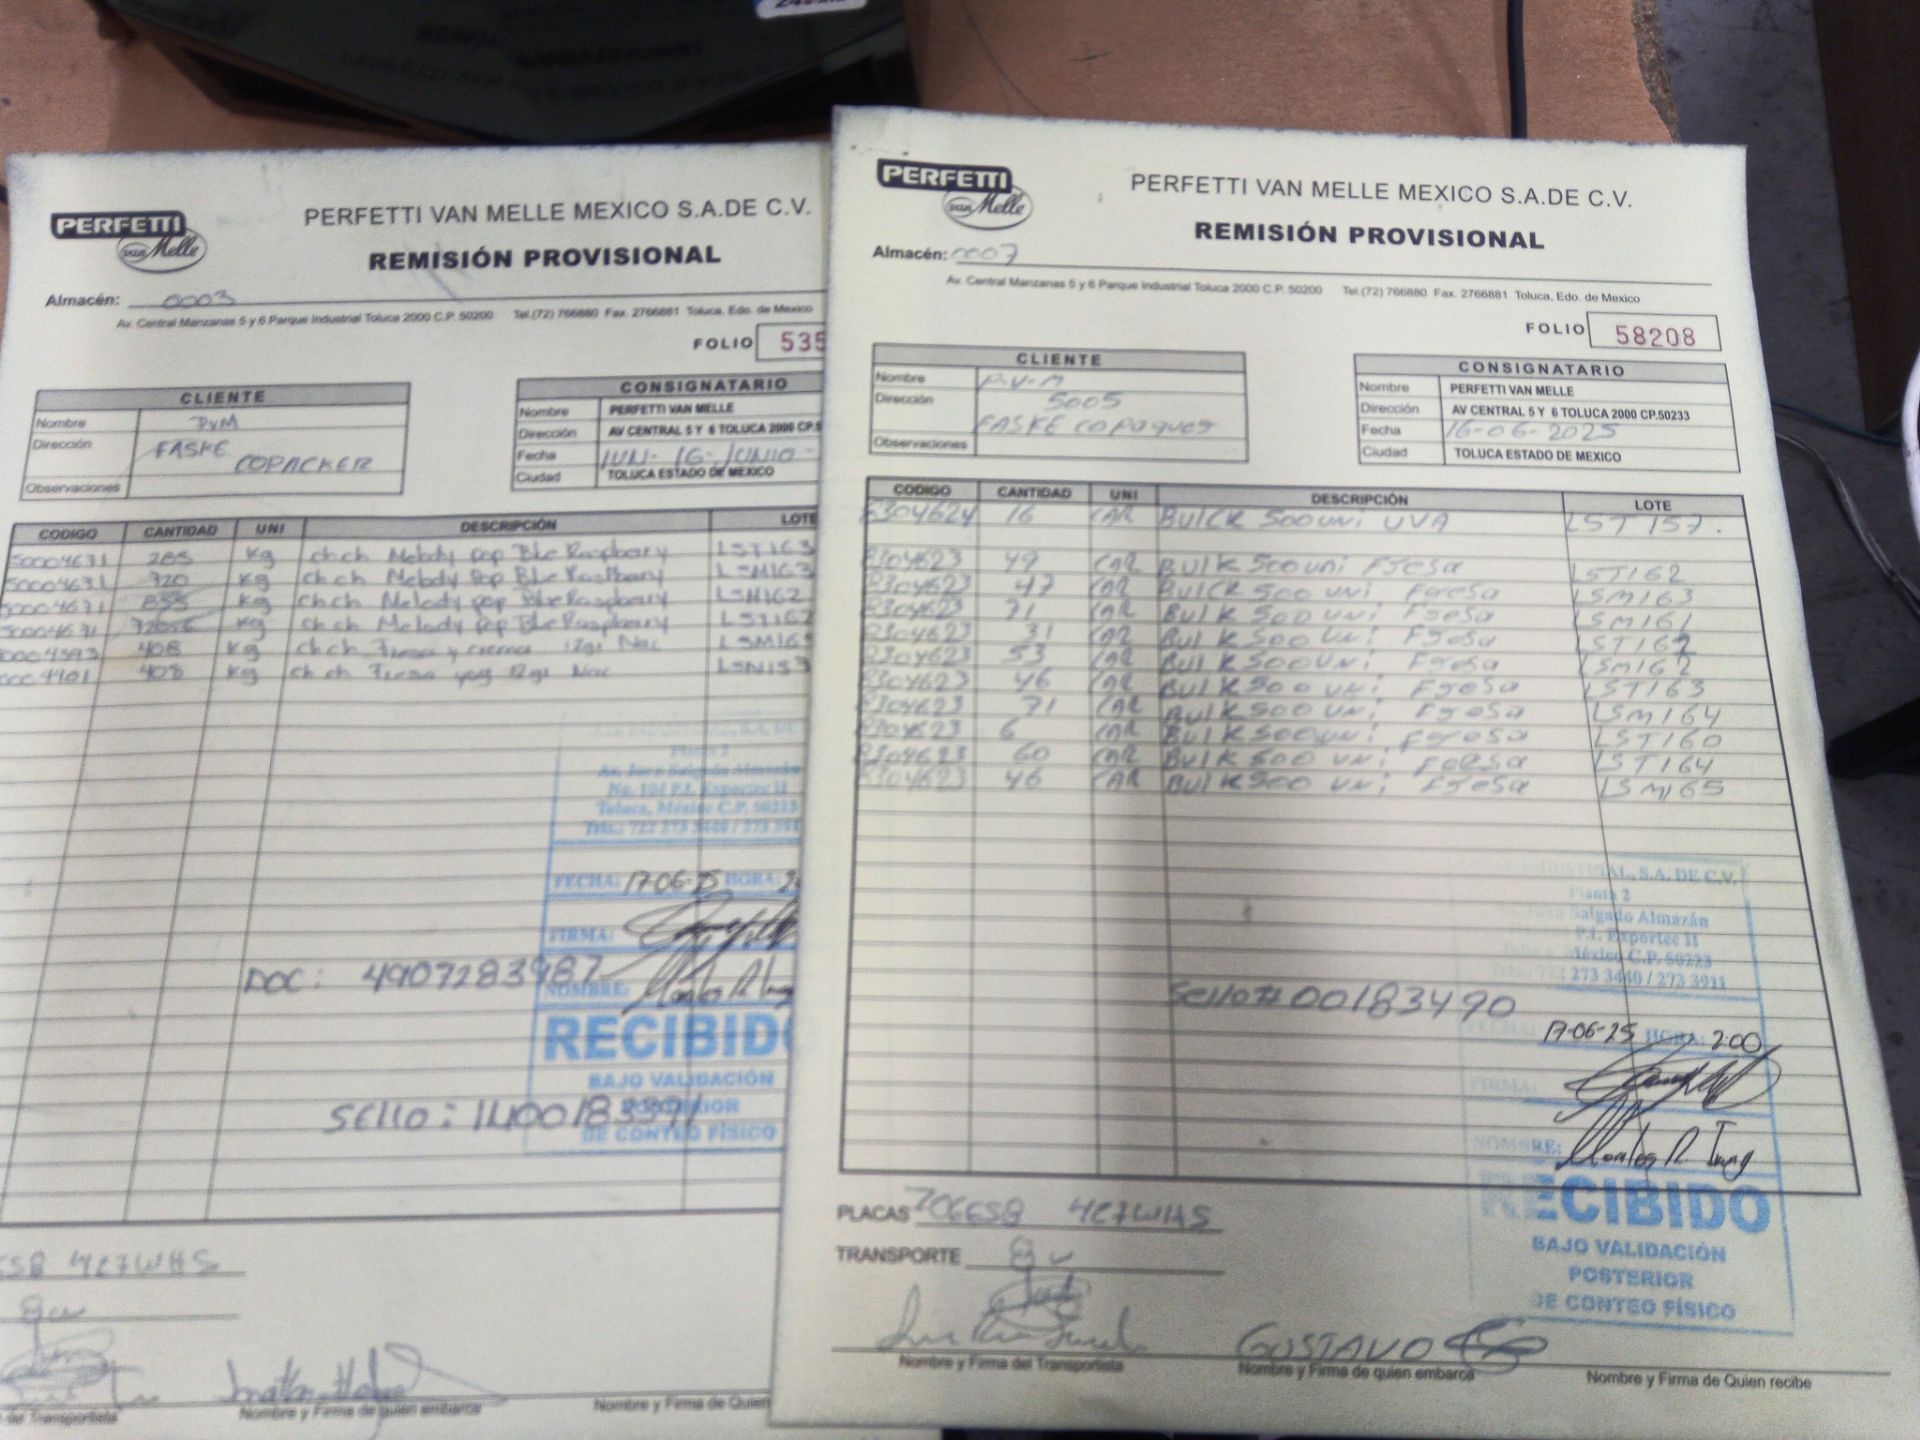 PERFETTI
van Melle
PERFETTI VAN MELLE MEXICO S.A.DE C.V.
REMISIÓN PROVISIONAL
Almacén: 0003
Av. Central Manzanas 5 y 6 Parque Industrial Toluca 2000 C.P. 50200 Tel.(72) 766880 Fax. 2766881 Toluca, Edo. de Mexico
FOLIO 535
CLIENTE
Nombre PVM
Dirección FASKE
COPACKER
Observaciones
CONSIGNATARIO
Nombre PERFETTI VAN MELLE
Dirección AV CENTRAL 5 Y 6 TOLUCA 2000 CP.5
Fecha LUN- 16-JUNIO-
Ciudad TOLUCA ESTADO DE MEXICO
CODIGO CANTIDAD UNI DESCRIPCIÓN LOTE
50004631 285 Kg ch.ch Melody pop Blue Raspberry LST163
50004631 720 Kg ch.ch Melody Pop Blue Raspberry LSM163
50004631 855 Kg ch.ch Melody pop Blue Raspberry LSM162
50004631 Kg ch.ch Melody Pop Blue Raspberry LST162
0004593 408 Kg ch.ch Fresa y crema 12gr Nac
408 Kg ch ch Fresa yog 12gr Nac
Planta 2
Av. Juan Salgado Almazán
No. 104 P.I. Exportec II
Toluca, México C.P. 50223
Tels.: 722 273 3440 / 273 391
FECHA: 17-06-25 HORA: 2
FIRMA:
DOC: 4907283987
NOMBRE:
RECIBIDO
BAJO VALIDACIÓN
POSTERIOR
DE CONTEO FÍSICO
Sello:
58 427WHS
8u
Nombre y Firma de quien embarca
Nombre y Firma de Quien
PERFETTI
van Melle
PERFETTI VAN MELLE MEXICO S.A.DE C.V.
REMISIÓN PROVISIONAL
Almacén: 0007
Av. Central Manzanas 5 y 6 Parque Industrial Toluca 2000 C.P. 50200 Tel.(72) 766880 Fax. 2766881 Toluca, Edo. de Mexico
FOLIO 58208
CLIENTE
Nombre P.V-M
Dirección 5005
FASKE copaques
Observaciones
CONSIGNATARIO
Nombre PERFETTI VAN MELLE
Dirección AV CENTRAL 5 Y 6 TOLUCA 2000 CP.50233
Fecha 16-06-2025
Ciudad TOLUCA ESTADO DE MEXICO
CODIGO CANTIDAD UNI DESCRIPCIÓN LOTE
8304624 16 CAR BUlCK 500uni UVA LST157.
8304623 49 CAR BUlK 500uni Fresa LST162
8304623 47 CAR BUlCK 500 uni Fresa LSM163
8304623 71 CAR BUlK 500 Uni Fresa LSM161
8304623 31 CAR BUlK 500 Uni Fresa LST162
8304623 53 CAR BUlK 500 UNi Fresa LSM162
8304623 46 CAR BUlK 500 UNi Fresa LST163
8304623 71 CAR BUlK 500 UNi Fresa LSM164
8304623 6 CAR BUlK 500 UNi Fresa LST160
8304623 60 CAR BUlK 500 UNi Fresa LST164
8304623 46 CAR BUlK 500 UNi Fresa LSM165
INDUSTRIAL, S.A. DE C.V.
Planta 2
Salgado Almazán
P.I. Exportec II
México C.P. 50223
273 3440 / 273 3911
Sello# 00183490
17-06-25 HORA: 2:00
FIRMA:
NOMBRE:
RECIBIDO
BAJO VALIDACIÓN
POSTERIOR
DE CONTEO FÍSICO
PLACAS 427WHS
TRANSPORTE 8u
GUSTAVO
Nombre y Firma del Transportista
Nombre y Firma de quien embarca
Nombre y Firma de Quien recibe